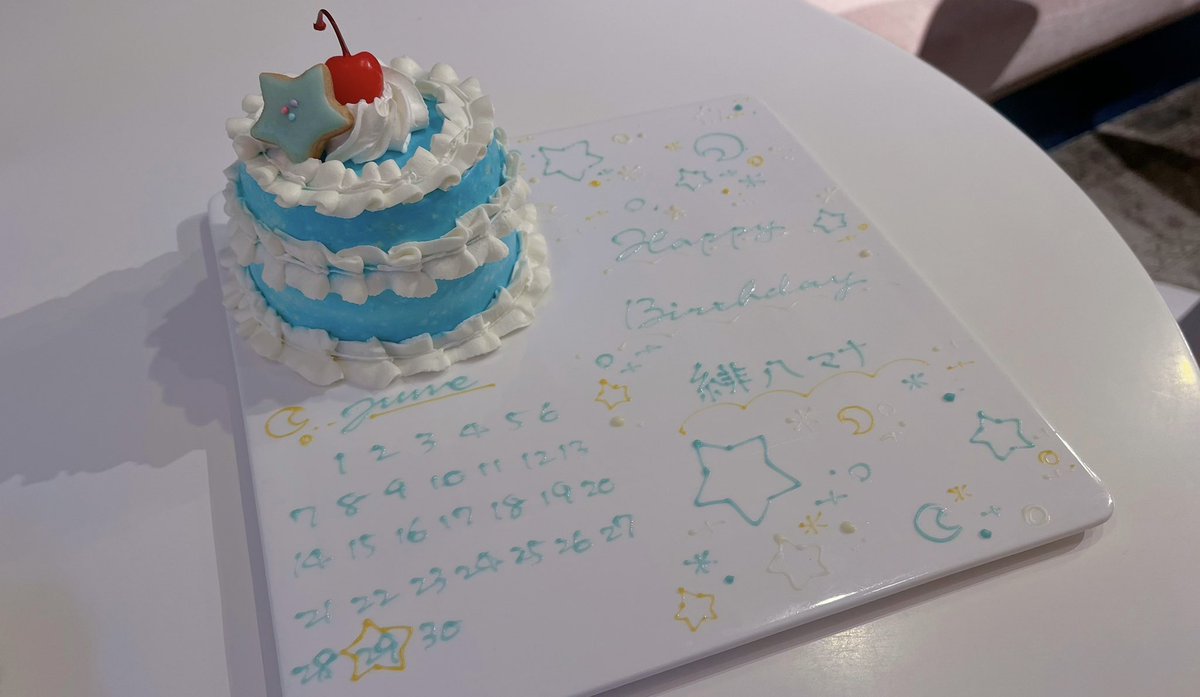 Happy
Birthday
緋八マナ
June
1 2 3 4 5 6
7 8 9 10 11 12 13
14 15 16 17 18 19 20
21 22 23 24 25 26 27
28 29 30